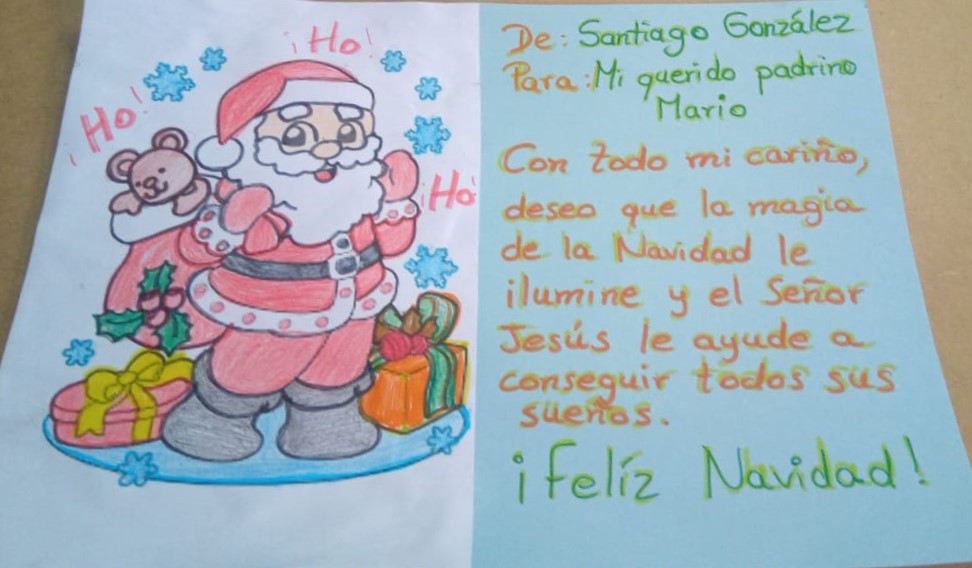 ¡Ho!
Ho!
¡Ho
De: Santiago González
Para: Mi querido padrino
Mario
Con todo mi cariño,
deseo que la magia
de la Navidad le
ilumine y el Señor
Jesús le ayude a
conseguir todos sus
sueños.
¡Felíz Navidad!